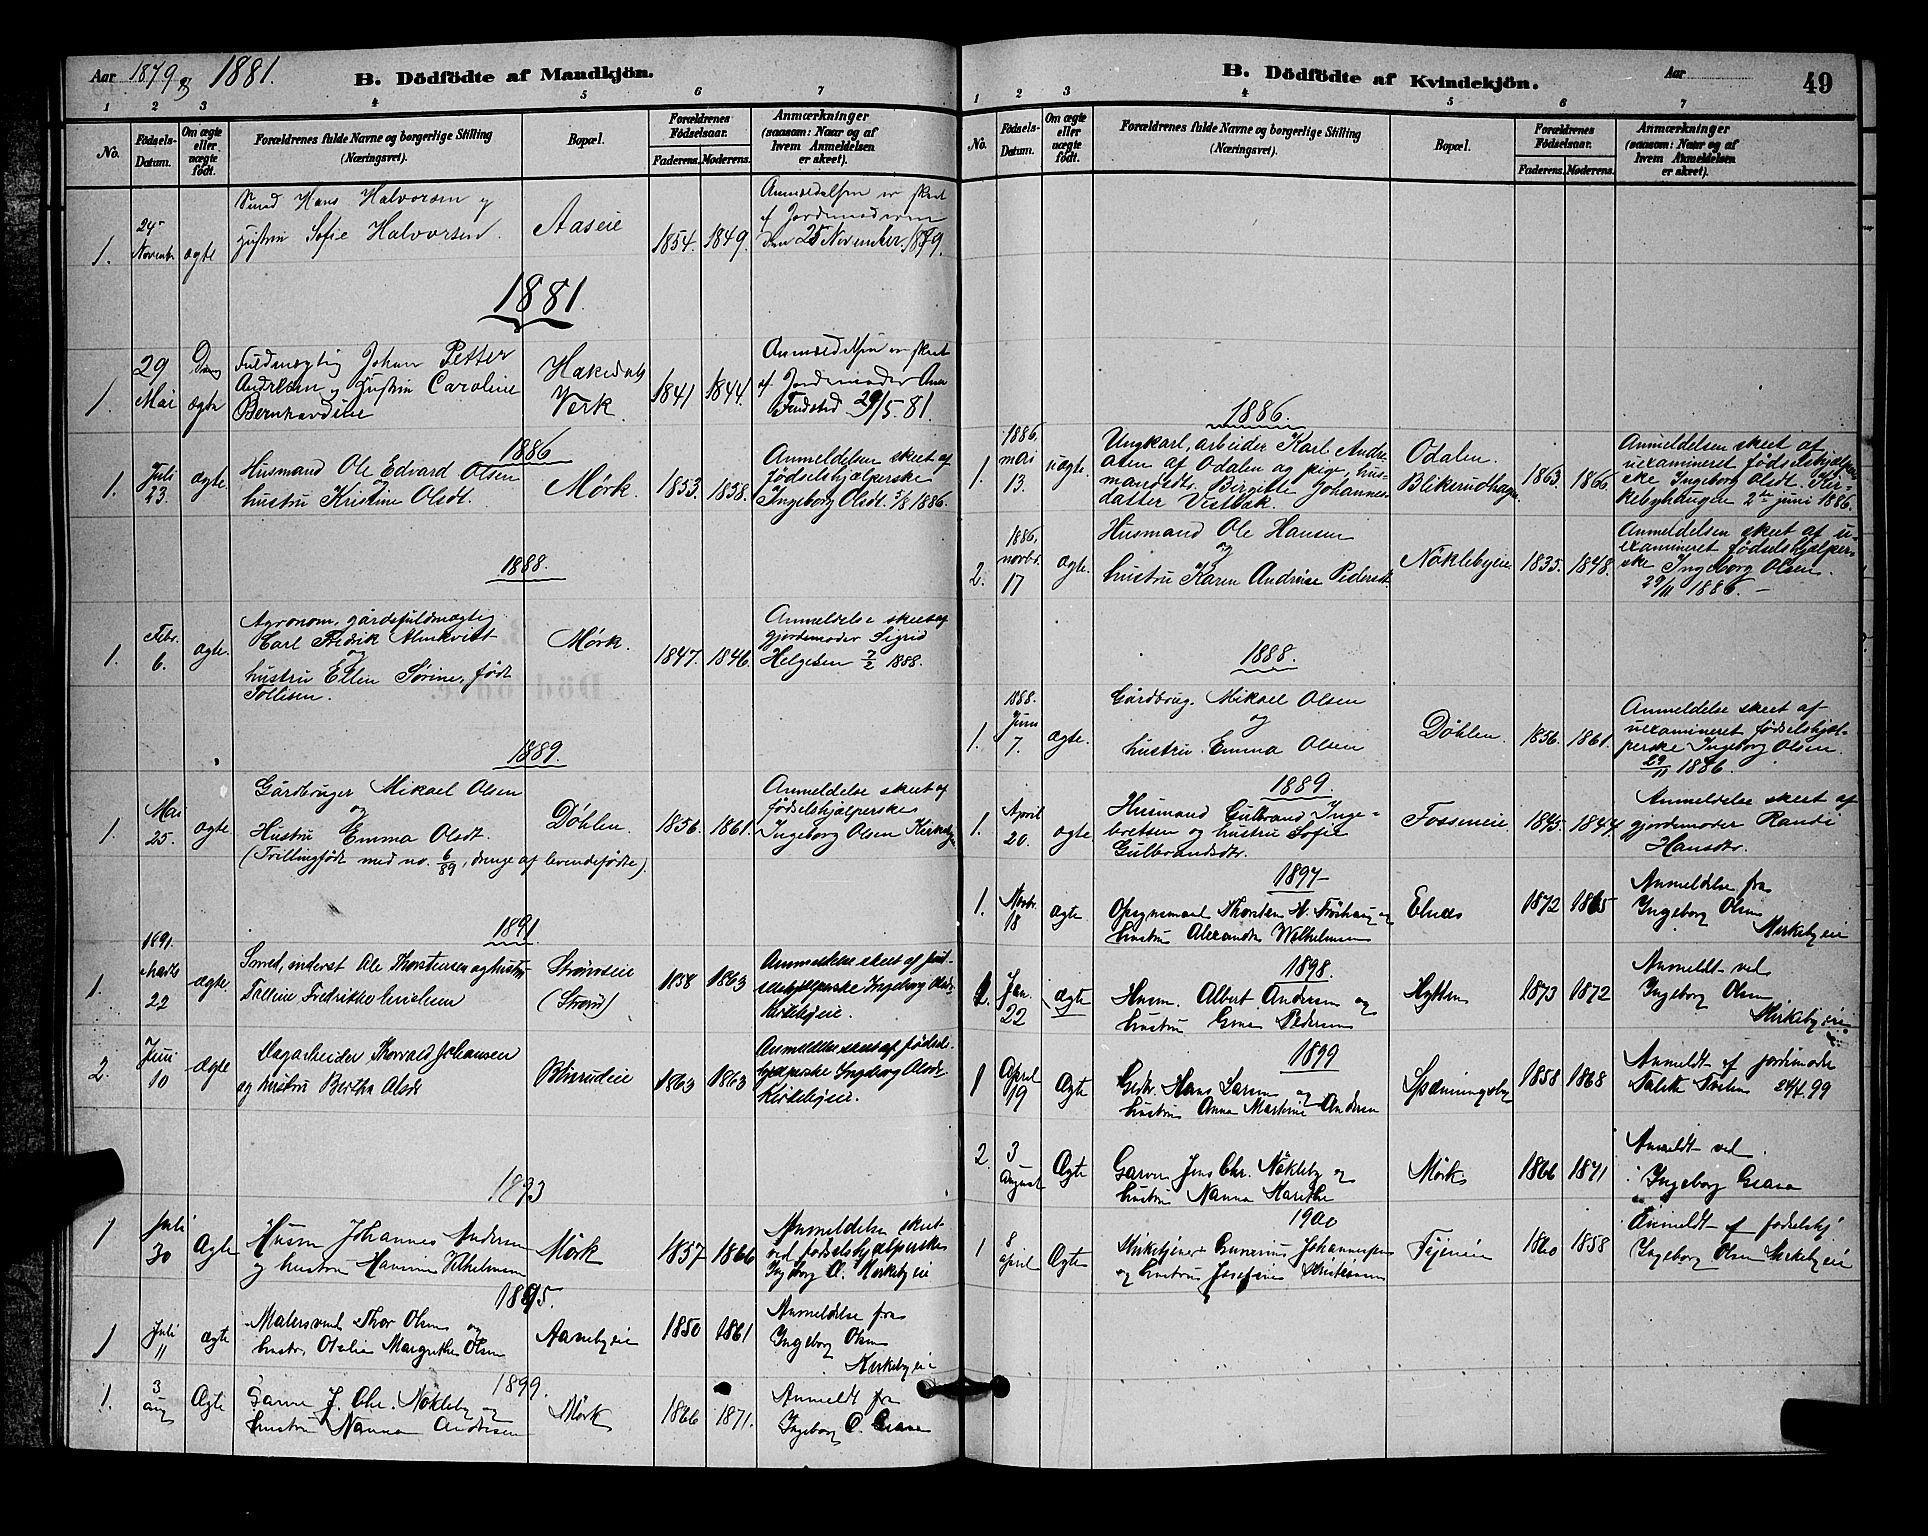 Aar 1879 & 1881.
B. Dödfödte af Mandkjön.
1 2 3 4 5 6 7
No.
Födsels-Datum.
Om ægte eller uægte födt.
Forældrenes fulde Navne og borgerlige Stilling (Næringsvei).
Bopæl.
Forældrenes Födselsaar.
Faderens. Moderens.
Anmærkninger (saasom: Naar og af hvem Anmeldelsen er skeet).
Smed Hans Halvorsen og
Hustru Sofie Halvorsen.
1. 25 Novemb ægte
Aaseie
1854. 1849.
Anmeldelsen er skeet
af Jordemoderen
den 25 November 1879.
1881
1. 29 Mai ægte
Fuldmægtig Johan Petter
Andresen og Hustru Caroline
Bernhardine
Hakedals
Verk.
1841 1844.
Anmeldelsen er skeet
af Jordemoder Ana
29/5. 81.
1886
1. Juli 23. ægte.
Husmand Ole Edvard Olsen
og
hustru Kristine Olsdt.
Mørk.
1853. 1858.
Anmeldelsen skeet af
fødselshjælperske
Ingeborg Olsdt. 3/8 1886.
1888.
1. Febr. 6. ægte.
Agronom, gårdsfuldmægtig
Carl Fredrik Almkvist
og
hustru Ellen Sørine, født
Tollisen.
Mørk.
1847. 1846.
Anmeldelse skeet af
gjordemoder Sigrid
Helgesen 7/2 1888.
1889.
1. Mai 25. ægte.
Gårdbruger Mikael Olsen
og
Hustru Emma Olsdt.
(Trillingfødt med no. 6/89, drenge af levendefødte).
Døhlen.
1856. 1861.
Anmeldelse skeet af
fødselshjælperske
Ingeborg Olsen Kirkeby
1891.
1. 1891. Marts 22 ægte.
Smed, inderst Ole Thorstensen og hustru
Talline Fredrikke
Strømseie
(Strøm)
1858 1863
Anmeldelse skeet af fød-
selshjælperske Ingeborg Olsdt
Kirkebyeie.
2. Juni 10 ægte
Dagarbeider Thorvald Johansen
og hustru Bertha Olsdt
1863 1863
Anmeldelse skeet af fødsels-
hjælperske Ingeborg Olsdt.
Kirkebyeie.
1893
1 Juli 30 Ægte
Husm Johannes Andersen
og hustru Hansine Vilhelmsen
Mørk
1857 1866
Anmeldelse skeet
ved fødselshjælperske
Ingeborg O. Kirkebyeie
1895.
1 Juli 11 ægte
Malersvend Thor Olsen og
hustr. Otelia Margrethe Olsen
Aanebyeie
1850 1861
Anmeldelse fra
Ingeborg Olsen
Kirkebyeie
1899.
1. 3 aug Ægte
Garver J. Chr. Nökleby og
hustru Nanna Andersen
Mörk
1866 1871.
Anmeldt fra
Ingeborg O.
B. Dödfödte af Kvindekjön.
Aar
49
1 2 3 4 5 6 7
No.
Födsels-Datum.
Om ægte eller uægte födt.
Forældrenes fulde Navne og borgerlige Stilling (Næringsvei).
Bopæl.
Forældrenes Födselsaar.
Faderens. Moderens.
Anmærkninger (saasom: Naar og af hvem Anmeldelsen er skeet).
1886.
1. 1886. mai 13. uægte.
Ungkarl, arbeider Karl Andre
asen af Odalen og pige, hus-
mandsdtr. Birgitte Johannes
datter Vestbak.
Odalen.
Blikerudhagen
1863. 1866.
Anmeldelsen skeet af
uexamineret fødselshjælper
ske Ingeborg Olsdt. Kir-
kebyhaugen 2den juni 1886.
2. 1886. novbr. 17 ægte.
Husmand Ole Hansen
og
hustru Karen Andrine Pedersdt
Nöklebyeie
1835. 1848.
Anmeldelsen skeet af u-
examineret fødselshjælper-
ske Ingeborg Olsen.
29/11 1886. —
1888.
1. 1888. Juni 7. ægte.
Gårdbrug. Mikael Olsen
og
hustru Emma Olsen
Døhlen.
1856. 1861.
Anmeldelse skeet af
uexamineret fødselshjæl-
perske Ingeborg Olsen.
29/11 1886.
1889.
1. April 20. ægte
Husmand Gulbrand Inge-
bretsen og hustru Sofie
Gulbrandsdtr.
Fossneie.
1845. 1844
Anmeldelse skeet af
gjordemoder Randi
Hansdtr.
1897
1. Novbr. 18 ægte
Opsynsmand Thorsten N. Fröhaug og
hustru Alexandra Wilhelmsen
Elnæs
1872 1865
Anmeldelse fra
Ingeborg Olsen
Kirkebyeie
1898.
1. Jan. 22 ægte
Husm. Albert Andersen og
hustru Pedersen
Hytten
1873 1872
Anmeldt ved
Ingeborg Olsen
Kirkebyeie
1899
1 April 19 Ægte
Hans Larsen og
hustru Anna Martine Andersen
Spæningsby
1858 1868
Anmeldt af jordemoder
24/4. 99
2. 3 August Ægte
Garver Jens Chr. Nökleby og
hustru Nanna Marthe
Mörk
1866 1871
Anmeldt ved
Ingeborg
1900
1 8 april Ægte
Kirketjener Gunerius Johannessen
og hustru Josefine Kristiansen
1860 1858
Anmeldt af fødselshj
Ingeborg Olsen Kirkebyeie